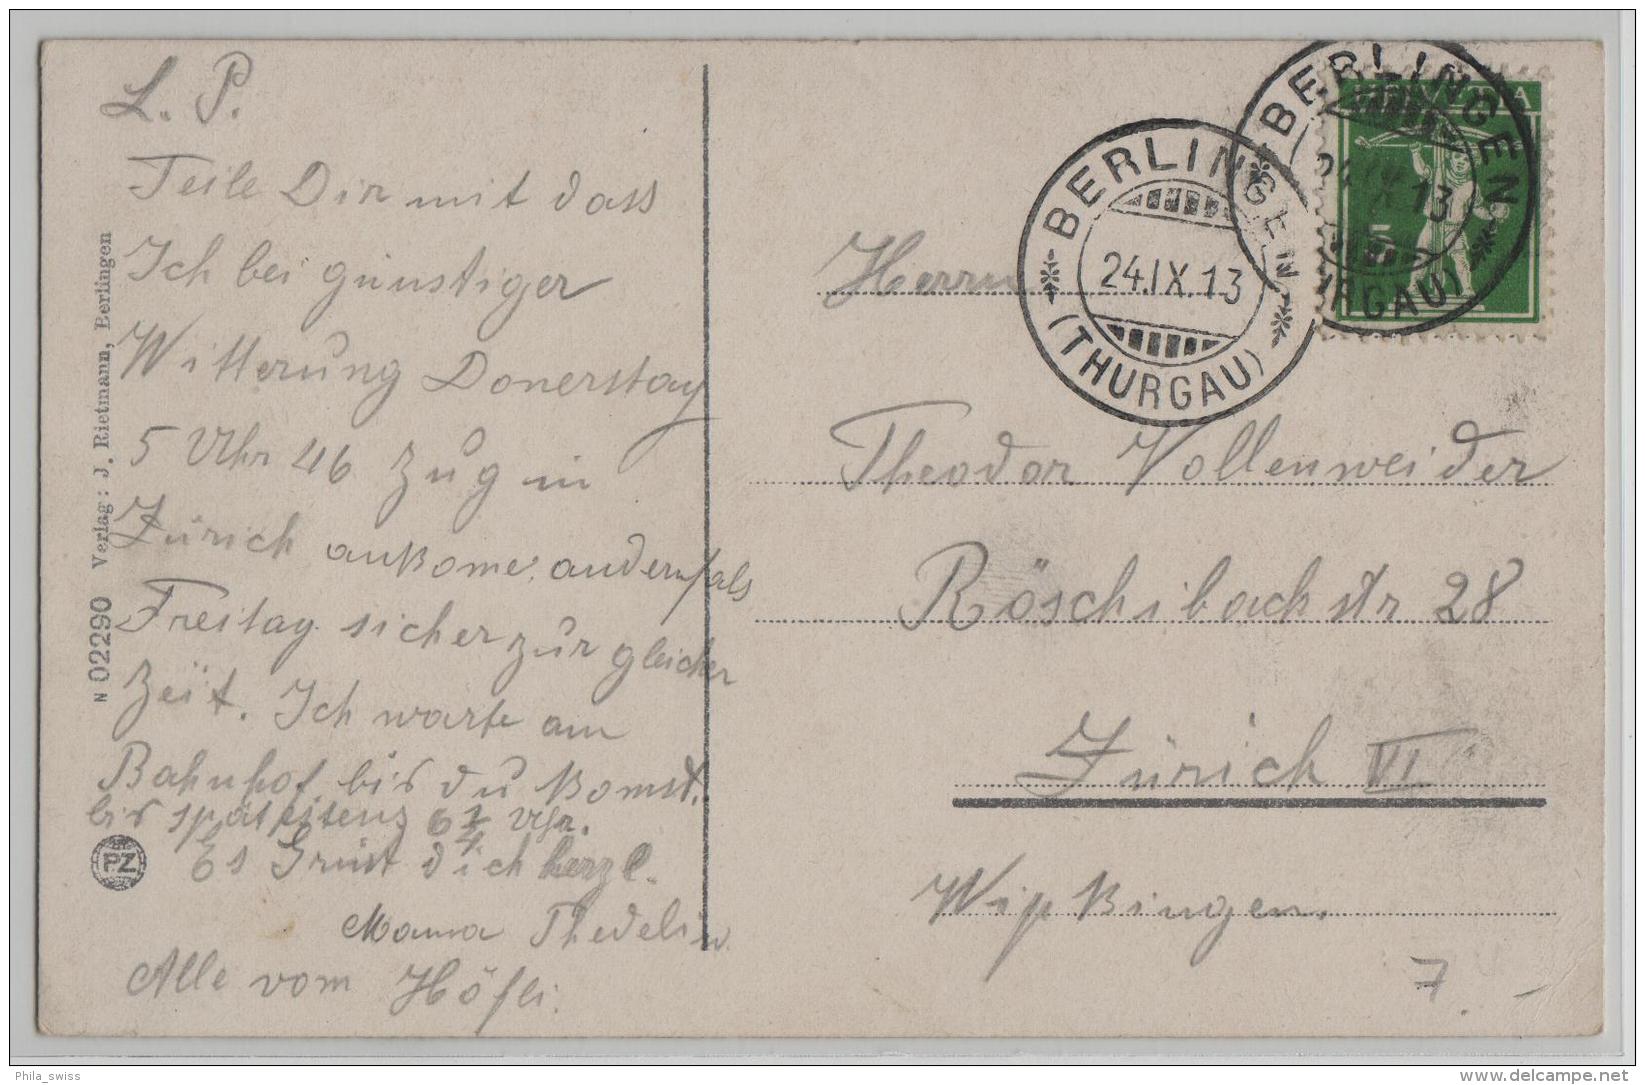 L. P.
Teile Dir mit dass
Ich bei günstiger
Witterung Donerstag
5 Uhr 46 Zug in
Zürich ankome, andernfals
Freitag sicher zur gleicher
Zeit. Ich warte am
Bahnhof bis du komst.
bis spätestens 6 3/4 Uhr.
Es Grüst dich herzl.
Mama Thedeli
Alle vom Höfli.
N 02290 Verlag: J. Rietmann, Berlingen
PZ
BERLINGEN
24.IX.13
(THURGAU)
BERLINGEN
24.IX.13
(THURGAU)
HELVETIA
5
Herrn
Theodor Vollenweider
Röschibachstr 28
Zürich VI
Wipkingen.
7.-
Phila_swiss
www.delcampe.net